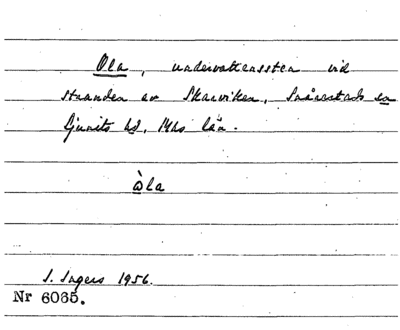 Ola, undervattenssten vid
stranden av Skarviken, Snårestads sn
Ljunits hd, Mhs län.
òla
I. Ingers 1956.
Nr 6065.